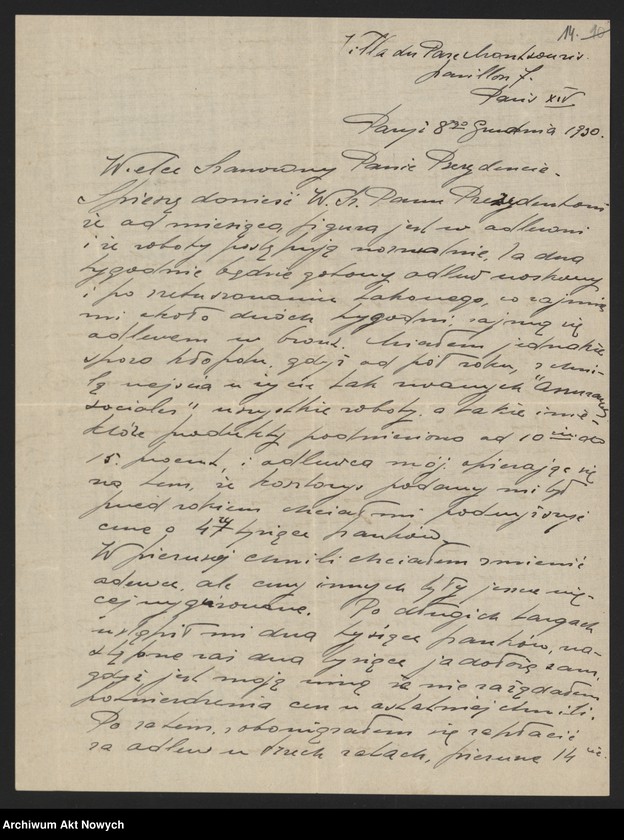 14. 10
Villa du Parc Montsouris.
pavillon 7.
Paris XIV
Paryż 8go Grudnia 1930.
Wielce Szanowny Panie Prezydencie.
Spieszę donieść W. Sz. Panu Prezydentowi
że od miesiąca, figura jest w odlewni
i że roboty postępują normalnie, za dwa
tygodnie będzie gotowy odlew woskowy
i po retuszowaniu takowego, co zajmie
mi około dwóch tygodni, zajmą się
odlewem w bronz. Miałem jednakże
sporo kłopotu, gdyż od pół roku, z chwi-
lą wejścia w życie tak zwanych "Assurances
sociales" wszystkie roboty, a także i nie-
które produkty podniesiono od 10ciu do
15. procent, i odlewca mój, opierając się
na tem, że kosztorys podany mi był
przed rokiem chciał mi podwyższyć
cenę o 4ry tysiące franków.
W pierwszej chwili chciałem zmienić
odlewcę, ale ceny innych były jeszcze wię-
cej wygórowane. Po długich targach
ustąpił mi dwa tysiące franków, na-
stępne zaś dwa tysiące ja dołożę sam,
gdyż jest moją winą że nie zażądałem
potwierdzenia cen w ostatniej chwili.
Po zatem, zobowiązałem się zapłacić
za odlew w trzech ratach, pierwszą 14
Archiwum Akt Nowych